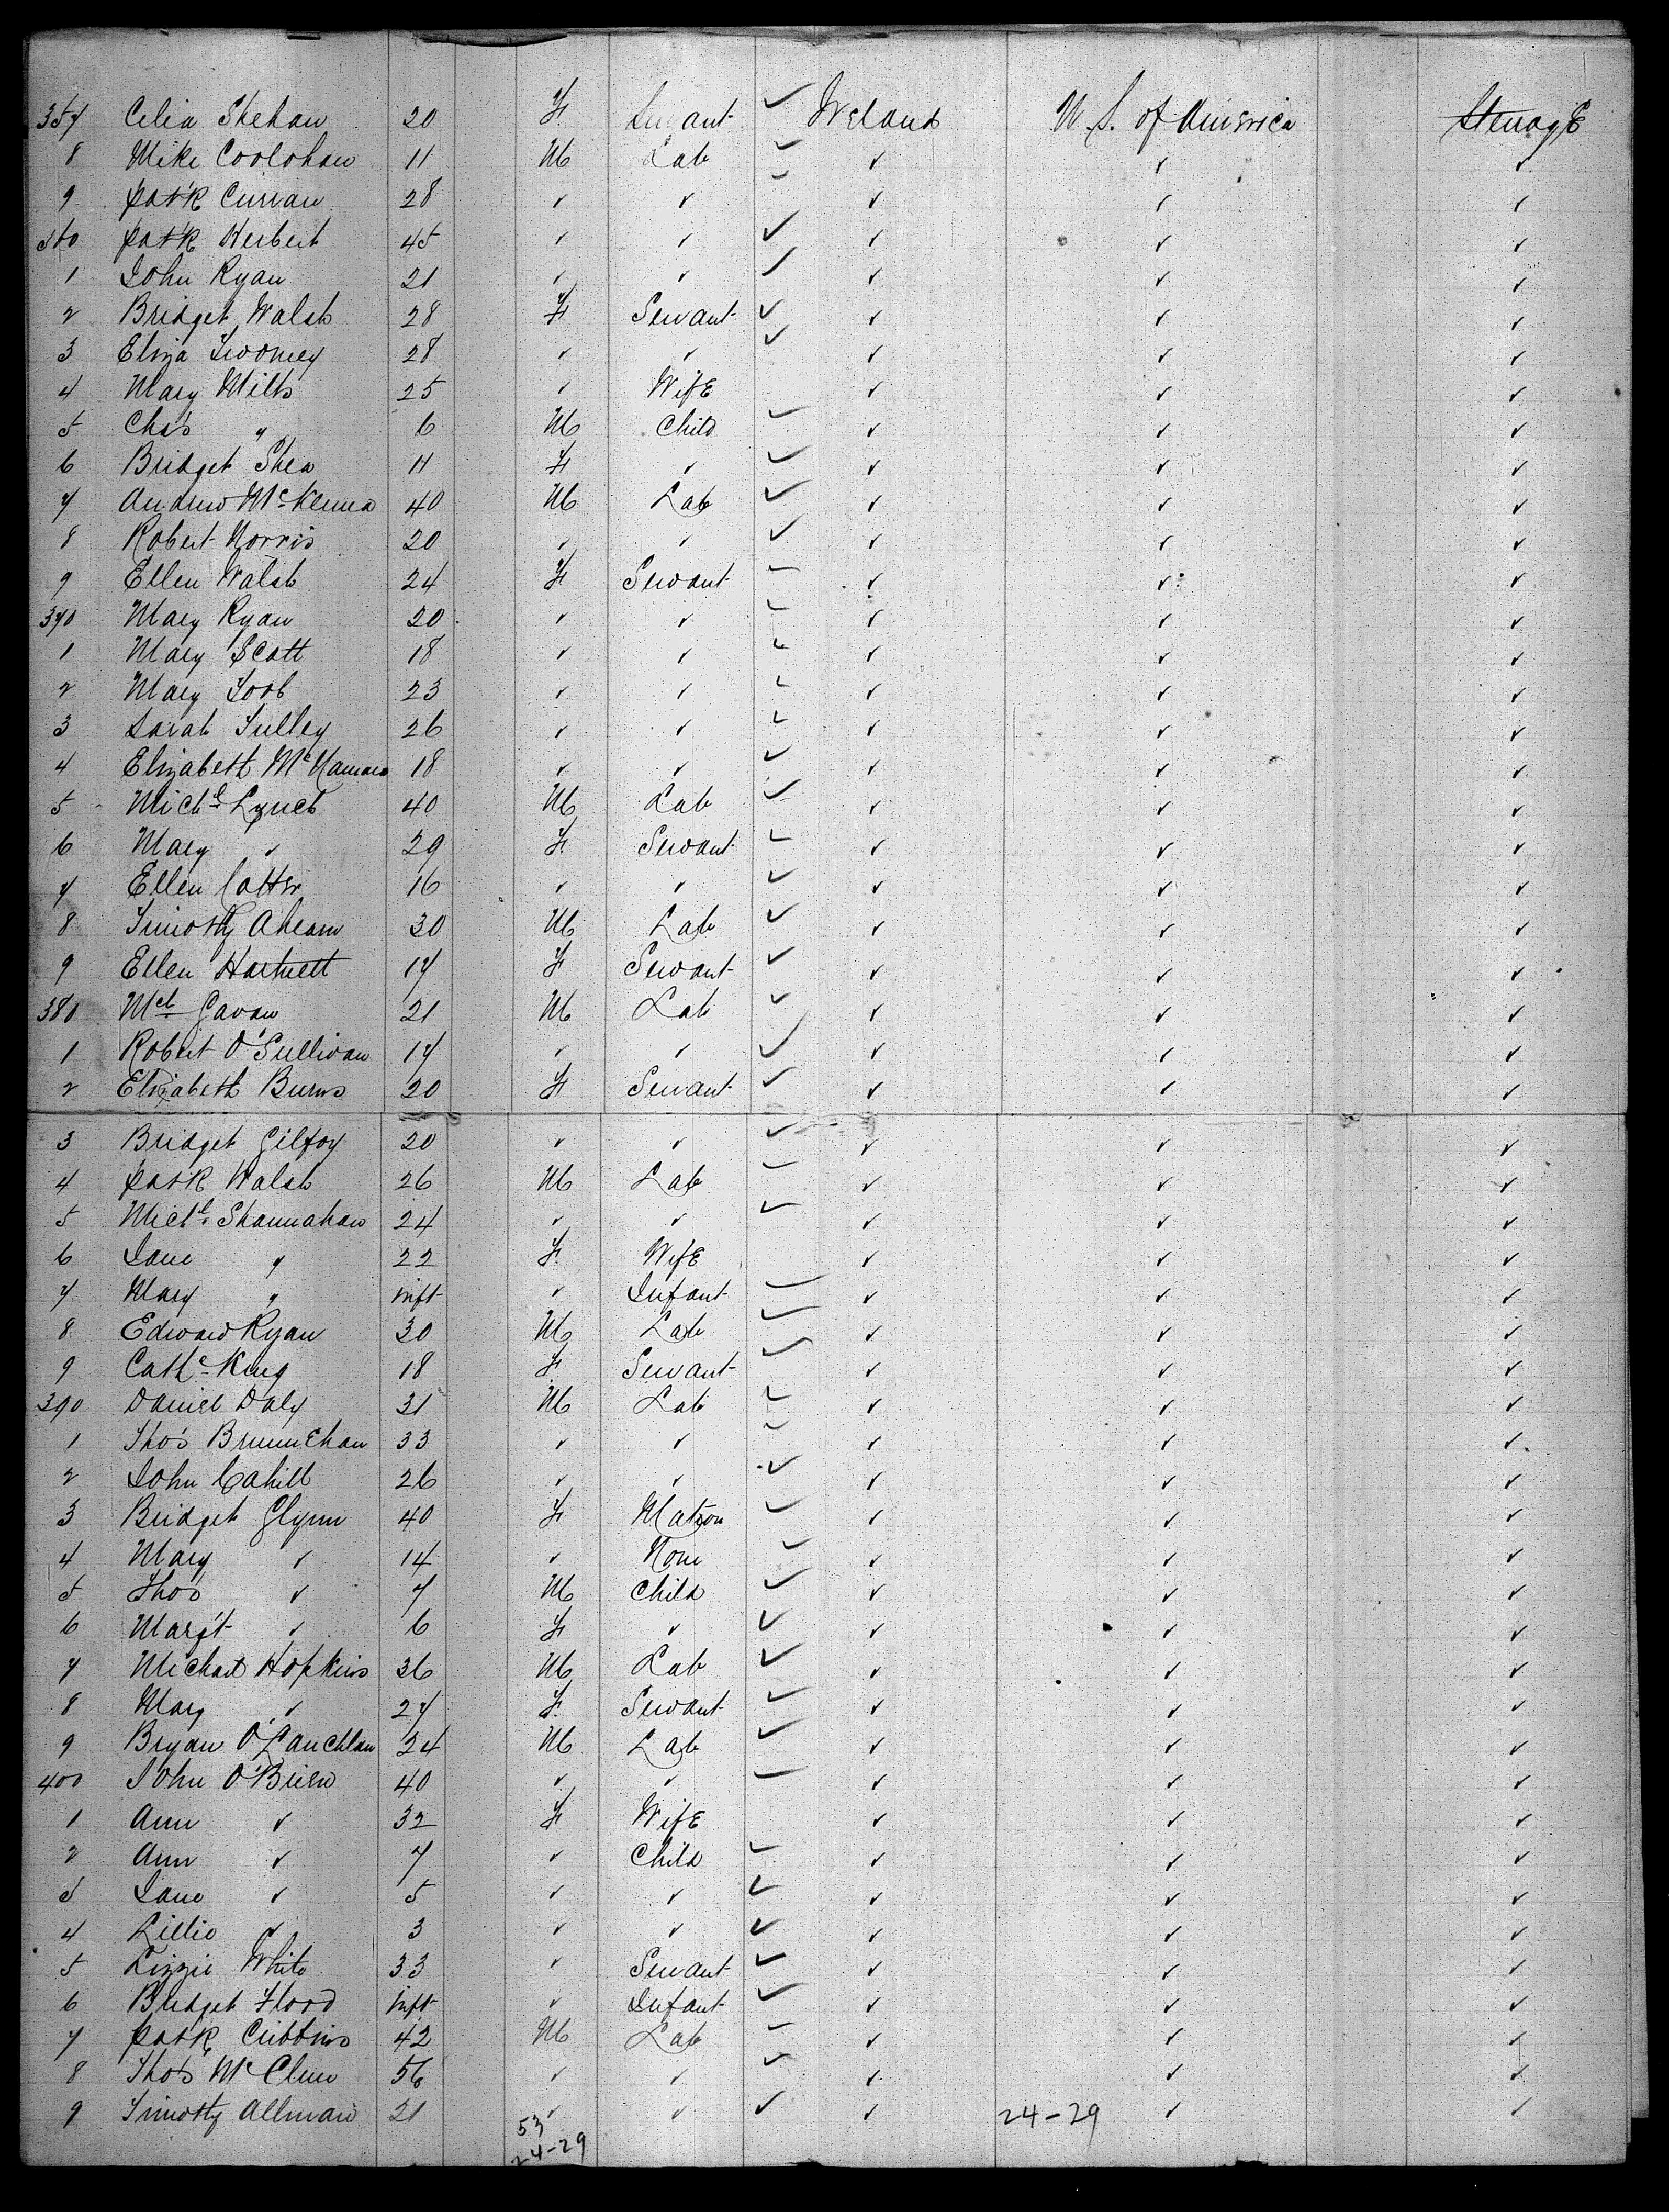 357 Celia Shehan 20 F Servant ✓ Ireland U.S. of America Steerage
8 Mike Coolohan 11 M Lab ✓ ✓ ✓ ✓
9 Patk Curran 28 ✓ ✓ ✓ ✓ ✓ ✓
360 Patk Herbert 45 ✓ ✓ ✓ ✓ ✓ ✓
1 John Ryan 21 ✓ ✓ ✓ ✓ ✓ ✓
2 Bridget Walsh 28 F Servant ✓ ✓ ✓ ✓
3 Eliza Twomey 28 ✓ ✓ ✓ ✓ ✓ ✓
4 Mary Mills 25 ✓ Wife ✓ ✓ ✓
5 Chas " 6 M Child ✓ ✓ ✓ ✓
6 Bridget Shea 11 F ✓ ✓ ✓ ✓ ✓
7 Andrew McKenna 40 M Lab ✓ ✓ ✓ ✓
8 Robert Norris 20 ✓ ✓ ✓ ✓ ✓ ✓
9 Ellen Walsh 24 F Servant ✓ ✓ ✓ ✓
370 Mary Ryan 20 ✓ ✓ ✓ ✓ ✓ ✓
1 Mary Scott 18 ✓ ✓ ✓ ✓ ✓ ✓
2 Mary 23 ✓ ✓ ✓ ✓ ✓ ✓
3 Sarah Tulley 26 ✓ ✓ ✓ ✓ ✓ ✓
4 Elizabeth McNamara 18 ✓ ✓ ✓ ✓ ✓ ✓
5 Michl Lynch 40 M Lab ✓ ✓ ✓ ✓
6 Mary ✓ 29 F Servant ✓ ✓ ✓ ✓
7 Ellen Cotter 16 ✓ ✓ ✓ ✓ ✓ ✓
8 Timothy Ahearn 30 M Lab ✓ ✓ ✓ ✓
9 Ellen Hartnett 17 F Servant ✓ ✓ ✓ ✓
380 Mcl Gavan 21 M Lab ✓ ✓ ✓ ✓
1 Robert O'Sullivan 17 ✓ ✓ ✓ ✓ ✓ ✓
2 Elizabeth Burns 20 F Servant ✓ ✓ ✓ ✓
3 Bridget Gilfoy 20 ✓ ✓ ✓ ✓ ✓ ✓
4 Patk Walsh 26 M Lab ✓ ✓ ✓ ✓
5 Michl Shannahan 24 ✓ ✓ ✓ ✓ ✓ ✓
6 Jane " 22 F Wife ✓ ✓ ✓
7 Mary " inft ✓ Infant ✓ ✓ ✓ ✓
8 Edward Ryan 30 M Lab ✓ ✓ ✓ ✓
9 Cathe King 18 F Servant ✓ ✓ ✓ ✓
390 Daniel Daly 31 M Lab ✓ ✓ ✓ ✓
1 Thos Brunnehan 33 ✓ ✓ ✓ ✓ ✓ ✓
2 John Cahill 26 ✓ ✓ ✓ ✓ ✓ ✓
3 Bridget Glynn 40 F Matron ✓ ✓ ✓ ✓
4 Mary ✓ 14 ✓ None ✓ ✓ ✓ ✓
5 Thos ✓ 7 M Child ✓ ✓ ✓ ✓
6 Margt ✓ 6 F ✓ ✓ ✓ ✓ ✓
7 Michael Hopkins 36 M Lab ✓ ✓ ✓ ✓
8 Mary ✓ 27 F Servant ✓ ✓ ✓ ✓
9 Bryan O'Lauchlan 34 M Lab ✓ ✓ ✓ ✓
400 John O'Brien 40 ✓ ✓ ✓ ✓ ✓ ✓
1 Ann ✓ 32 F Wife ✓ ✓ ✓
2 Ann ✓ 7 ✓ Child ✓ ✓ ✓ ✓
3 Jane ✓ 5 ✓ ✓ ✓ ✓ ✓ ✓
4 Lillie ✓ 3 ✓ ✓ ✓ ✓ ✓ ✓
5 Lizzie White 33 ✓ Servant ✓ ✓ ✓ ✓
6 Bridget Flood inft ✓ Infant ✓ ✓ ✓ ✓
7 Patk Cribbins 42 M Lab ✓ ✓ ✓ ✓
8 Thos McClure 56 ✓ ✓ ✓ ✓ ✓ ✓
9 Timothy Allman 21 ✓ ✓ ✓ ✓ 24-29 ✓ ✓
53
24-29